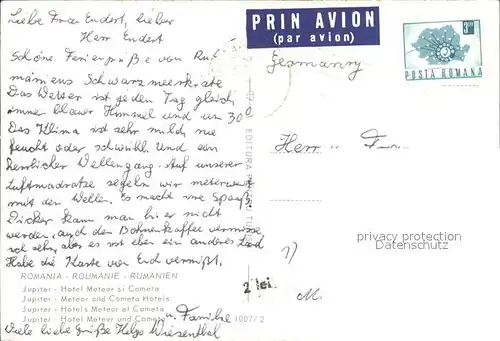 Liebe Frau Endert, lieber
Herr Endert
Schöne Feriengrüße von Ru
mäniens Schwarzmeerküste
Das Wetter ist jeden Tag gleich
immer blauer Himmel und um 30°
Das Klima ist sehr mild nie
feucht oder schwühl und ein
herrlicher Wellengang. Auf unserer
Luftmadratze segeln wir meterweit
mit den Wellen. Es macht uns Spaß
Dicker kann man hier nicht
werden, auch den Bohnenkaffee vermisse
ich sehr, aber es ist eben ein anderes Land
Habe die Karte von End vermißt.
ROMANIA - ROUMANIE - RUMANIEN
Jupiter - Hotel Meteor și Cometa
Jupiter - Meteor and Cometa Hotels
Jupiter - Hotels Meteor et Cometa
Jupiter - Hotel Meteor und Cometa
u. Familie
Viele liebe Grüße Helga Wiesenthal
1007/2
2 lei
EDITURA
PRIN AVION
(par avion)
Germany
POSTA ROMANA
Herr
privacy protection
Datenschutz